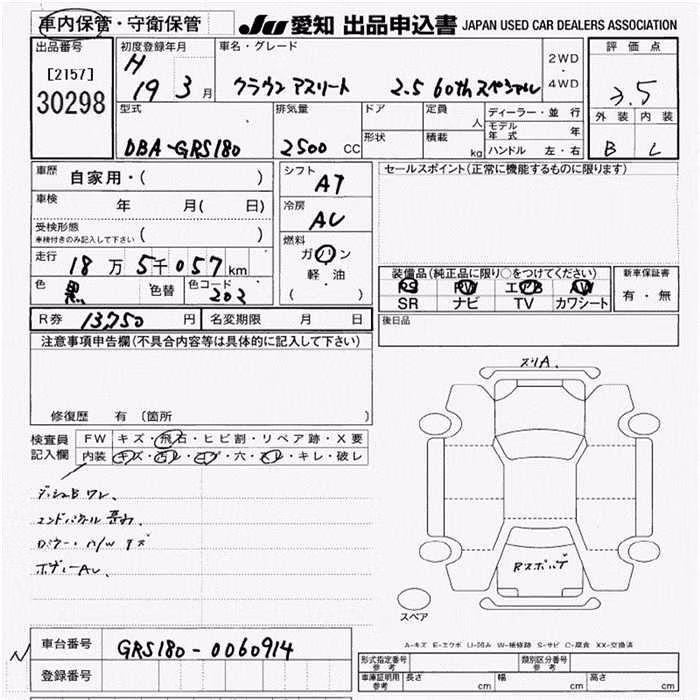 車内保管・守衛保管 JU 愛知 出品申込書 JAPAN USED CAR DEALERS ASSOCIATION
出品番号 初度登録年月 車名・グレード 評価点
[2157] H 2WD・4WD
30298 19 3月 クラウン アスリート 2.5 60thスペシャル 3.5
型式 排気量 ドア 定員 人 ディーラー・並行 外装 内装
形状 積載 kg モデル年式 年
DBA-GRS180 2500 CC ハンドル 左・右 B
車歴 自家用・( ) シフト AT セールスポイント(正常に機能するものに限ります)
車検 年 月( 日) 冷房
受検形態 AC
車検付きのみ記入して下さい ( ) 燃料
走行 ガソリン 装備品(純正品に限り○をつけてください) 新車保証書
18万5千057km 軽・油 PS PW エアB AW 有・無
色 黒 色替 色コード 202 ( ) SR ナビ TV カワシート
R券 13,750円 名変期限 月 日 後日品
注意事項申告欄(不具合内容等は具体的に記入して下さい)
修復歴 有 (箇所
検査員 FW キズ・飛石・ヒビ割・リペア跡・X要
記入欄 内装 キズ・ワレ・コゲ・穴・スレ・キレ・破レ
スリA.
ダッシュB ワレ、
Rスポイ
スペア
A-キズ E-エクボ U-凹み W-補修跡 S-サビ C-腐食 XX-交換済
車台番号 GRS180-0060914
登録番号
型式指定番号 参考 類別区分番号 参考
車庫証明用 参考 長さ cm 幅 cm 高さ cm